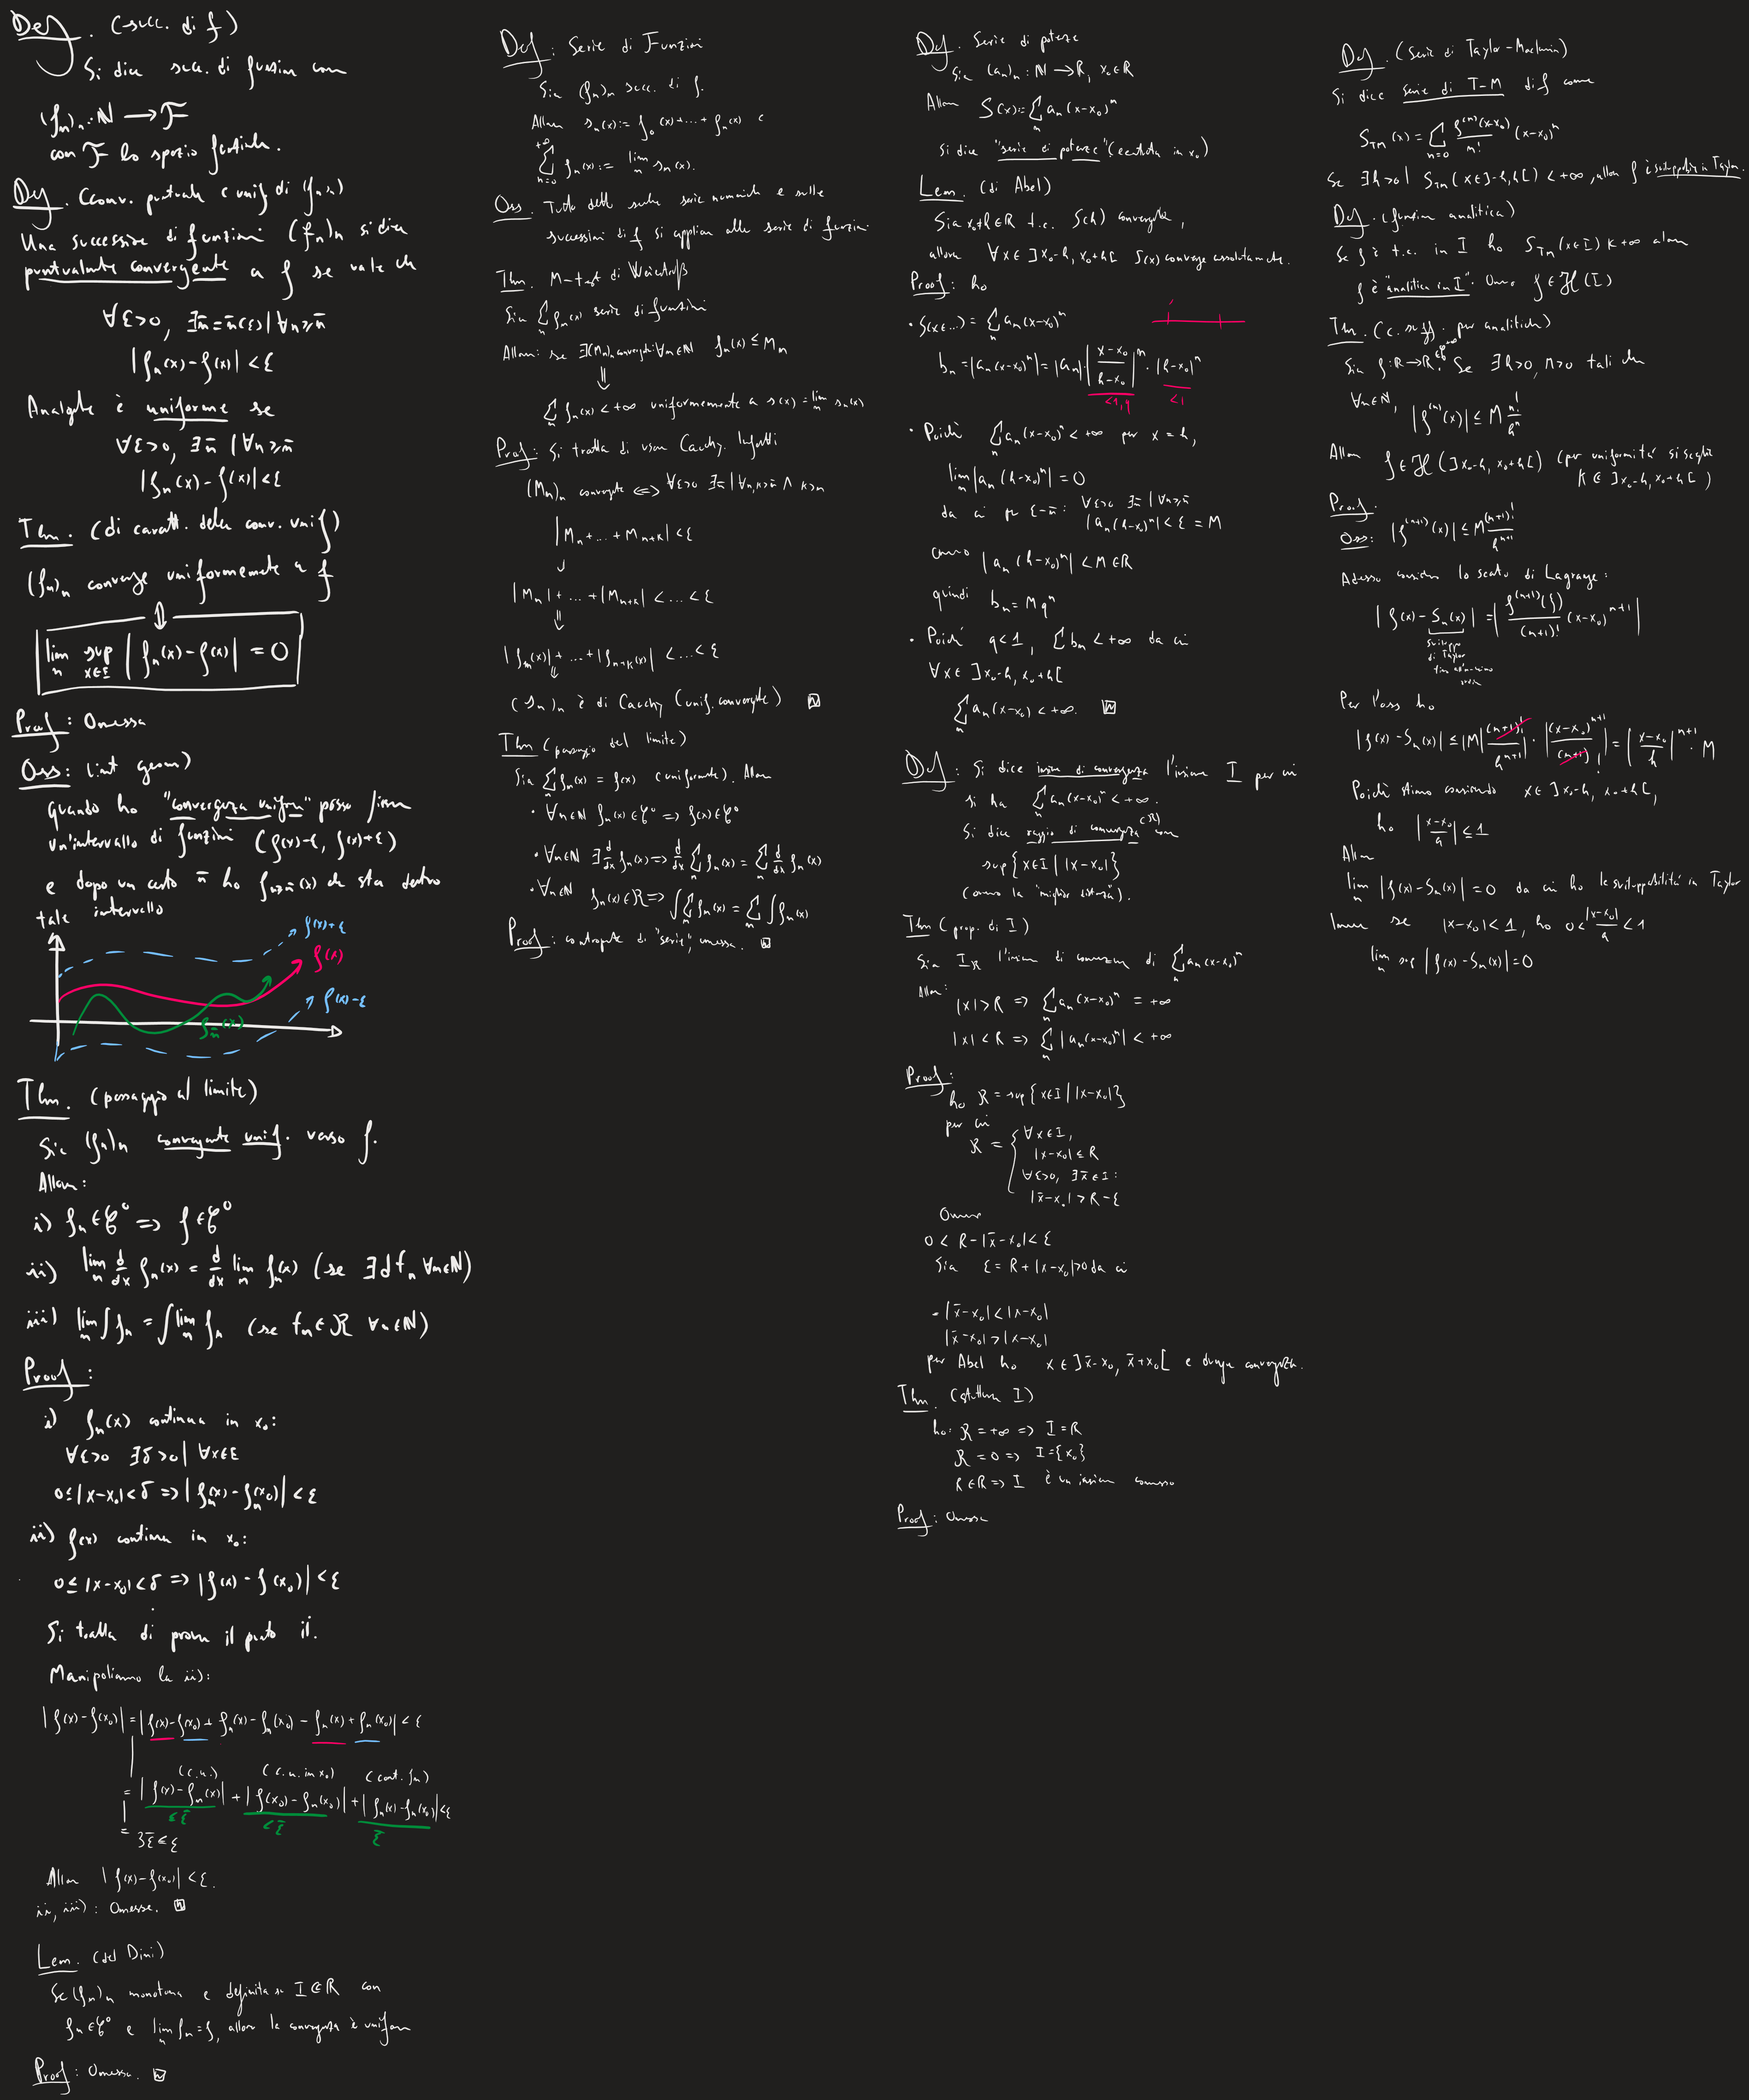 Def. (succ. di f)
Si dice succ. di funzioni con
(fₙ)ₙ: ℕ → ℱ
con ℱ lo spazio funzionale.
Def. (conv. puntuale e unif di (fₙ)ₙ)
Una successione di funzioni (fₙ)ₙ si dice
puntualmente convergente a f se vale che
∀ε>0, ∃n̄=n̄(ε) | ∀n≥n̄
|fₙ(x)-f(x)|<ε
è uniforme se
∀ε>0, ∃n̄ | ∀n≥n̄
|fₙ(x)-f(x)|<ε
Thm. (di caratt. della conv. unif)
(fₙ)ₙ converge uniformemente a f
⇕
lim_n sup_{x∈E} |fₙ(x)-f(x)| = 0
Proof: Omessa
Oss: (int. geom)
quando ho "convergenza unifrm" posso
un'intervallo di funzioni (f(x)-ε, f(x)+ε)
e dopo un certo n̄ ho che sta dentro
tale intervallo
f(x)+ε
f(x)
f(x)-ε
f_n̄(x)
Thm. (passaggio al limite)
Sia (fₙ)ₙ convergente unif. verso f.
Allora:
i) fₙ∈𝒞⁰ => f∈𝒞⁰
ii) lim_n d/dx fₙ(x) = d/dx lim_n fₙ(x) (se ∃dfₙ ∀n∈ℕ)
iii) lim_n ∫fₙ = ∫lim_n fₙ (se fₙ∈ℛ ∀n∈ℕ)
Proof:
i) fₙ(x) continua in x₀:
∀ε>0 ∃δ>0 | ∀x∈E
0≤|x-x₀|<δ => |fₙ(x)-fₙ(x₀)|<ε
ii) f(x) continua in x₀:
0≤|x-x₀|<δ => |f(x)-f(x₀)|<ε
Si tratta di provare il punto ii.
Manipoliamo la ii):
|f(x)-f(x₀)| = |f(x)-f(x₀)+fₙ(x)-fₙ(x₀)-fₙ(x)+fₙ(x₀)|<ε
(c.u.) (c.u. in x₀) (cont. fₙ)
= |f(x)-fₙ(x)| + |f(x₀)-fₙ(x₀)| + |fₙ(x)-fₙ(x₀)|<ε
≤ε̄ <ε̄ ε̄
= 3ε̄≤ε
Allora |f(x)-f(x₀)|<ε.
ii, iii): Omesse.
Lem. (del Dini)
Se (fₙ)ₙ monotona e definita su I⋐ℝ con
fₙ∈𝒞⁰ e lim_n fₙ=f, allora la convergenza è uniform
Proof: Omessa.
Def: Serie di Funzioni
Sia (fₙ)ₙ succ. di f.
Allora sₙ(x):=f₀(x)+...+fₙ(x) e
∑_{n=0}^{+∞} fₙ(x):= lim_n sₙ(x).
Oss. Tutto detto sulle serie numeriche e sulle
successioni di f si applica alle serie di funzioni
Thm. M-test di Weierstraß
Sia ∑_n fₙ(x) serie di funzioni
Allora: se ∃(Mₙ)ₙ convergente: ∀n∈ℕ fₙ(x)≤Mₙ
⇓
∑_n fₙ(x)<+∞ uniformemente a s(x)=lim_n sₙ(x)
Proof: Si tratta di usare Cauchy. Infatti
(Mₙ)ₙ convergente <=> ∀ε>0 ∃n̄ | ∀n,k≥n̄ ∧ k>n
|Mₙ+...+Mₙ₊ₖ|<ε
⇓
|Mₙ|+...+|Mₙ₊ₖ|<...<ε
⇓
|fₙ(x)|+...+|fₙ₊ₖ(x)|<...<ε
⇓
(sₙ)ₙ è di Cauchy (unif. convergente)
Thm (passaggio del limite)
Sia ∑_n fₙ(x) = f(x) (uniformente). Allora
• ∀n∈ℕ fₙ(x)∈𝒞⁰ => f(x)∈𝒞⁰
• ∀n∈ℕ ∃d/dx fₙ(x) => d/dx ∑_n fₙ(x) = ∑_n d/dx fₙ(x)
• ∀n∈ℕ fₙ(x)∈ℛ => ∫∑_n fₙ(x) = ∑_n ∫fₙ(x)
Proof: controparte di "serie", omessa.
Def. Serie di potenze
Sia (aₙ)ₙ: ℕ→ℝ, x₀∈ℝ
Allora S(x):=∑_n aₙ(x-x₀)ⁿ
si dice "serie di potenze" (centrata in x₀)
Lem. (di Abel)
Sia x₀+h∈ℝ t.c. S(h) convergente,
allora ∀x∈]x₀-h, x₀+h[ S(x) converge assolutamente.
Proof: ho
• S(x∈...)=∑_n aₙ(x-x₀)ⁿ
bₙ=|aₙ(x-x₀)ⁿ|=|aₙ|·|(x-x₀)/(h-x₀)|ⁿ·|h-x₀|ⁿ
<1, q <1
• Poiché ∑_n aₙ(x-x₀)ⁿ<+∞ per x=h,
lim_n |aₙ(h-x₀)ⁿ|=0
da cui per ε-n̄: ∀ε>0 ∃n̄ | ∀n≥n̄
|aₙ(h-x₀)ⁿ|<ε=M
ovvero |aₙ(h-x₀)ⁿ|<M∈ℝ
quindi bₙ=Mqⁿ
• Poiché q<1, ∑bₙ<+∞ da cui
∀x∈]x₀-h, x₀+h[
∑_n aₙ(x-x₀)<+∞.
Def: Si dice insieme di convergenza l'insieme I per cui
si ha ∑_n aₙ(x-x₀)ⁿ<+∞.
Si dice raggio di convergenza (ℛ) come
sup{x∈I | |x-x₀|}
(ovvero la "miglior distanza).
Thm (prop. di I)
Sia I_ℛ l'insieme di convergenza di ∑_n aₙ(x-x₀)ⁿ
Allora:
|x|>R => ∑_n aₙ(x-x₀)ⁿ = +∞
|x|<R => ∑_n |aₙ(x-x₀)ⁿ|<+∞
Proof:
ho ℛ=sup{x∈I | |x-x₀|}
per cui
ℛ = { ∀x∈I,
|x-x₀|≤R
∀ε>0, ∃x̄∈I:
|x̄-x₀|>R-ε
Ovvero
0<R-|x̄-x₀|<ε
Sia ε=R+|x-x₀|>0 da cui
-|x̄-x₀|<|x-x₀|
|x̄-x₀|>|x-x₀|
per Abel ho x∈]x̄-x₀, x̄+x₀[ e dunque convergenza.
Thm. (struttura I)
ho: ℛ=+∞ => I=ℝ
ℛ=0 => I={x₀}
R∈ℝ => I è un insieme connesso
Proof: Omessa
Def. (Serie di Taylor-Maclaurin)
Si dice serie di T-M di f come
S_TM(x)=∑_{n=0} f⁽ⁿ⁾(x-x₀)/n! (x-x₀)ⁿ
Se ∃h>0 | S_TM(x∈]-h,h[)<+∞, allora f è sviluppabile in Taylor.
Def. (funzione analitica)
Se f è t.c. in I ho S_TM(x∈I)<+∞ allora
f è "analitica in I". Ovvero f∈ℋ(I)
Thm. (c. suff. per analitiche)
Sia f:ℝ→ℝ, 𝒞^∞. Se ∃h>0, M>0 tali che
∀n∈ℕ, |f⁽ⁿ⁾(x)|≤M n!/hⁿ
Allora f∈ℋ(]x₀-h, x₀+h[) (per uniformità si sceglie
K⋐]x₀-h, x₀+h[)
Proof.
Oss: |f⁽ⁿ⁺¹⁾(x)|≤M (n+1)!/hⁿ⁺¹
Adesso considero lo scarto di Lagrange:
|f(x)-Sₙ(x)|=|f⁽ⁿ⁺¹⁾(ξ)/(n+1)! (x-x₀)ⁿ⁺¹|
sviluppo
di Taylor
Per l'oss ho
|f(x)-Sₙ(x)|≤|M (n+1)!/hⁿ⁺¹|·|(x-x₀)ⁿ⁺¹/(n+1)!|=|(x-x₀)/h|ⁿ⁺¹·M
Poiché stiamo considerando x∈]x₀-h, x₀+h[,
ho |(x-x₀)/h|≤1
Allora
lim_n |f(x)-Sₙ(x)|=0 da cui ho la sviluppabilità in Taylor
se |x-x₀|<1, ho 0<|x-x₀|/h<1
lim_n sup|f(x)-Sₙ(x)|=0